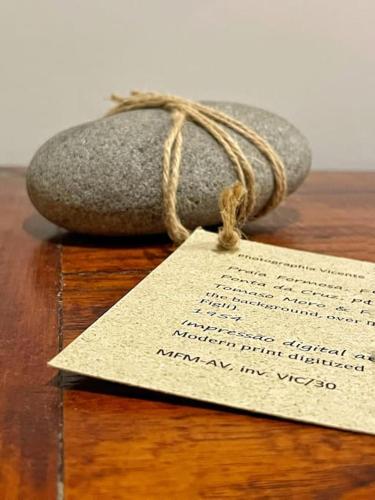 Photographia Vicente
Praia Formosa. F
Ponta da Cruz, pd
Tomaso Moro & F
the background, over m
Figli)
1954
Impressão digital ae
Modern print digitized
MFM-AV, inv. VIC/30